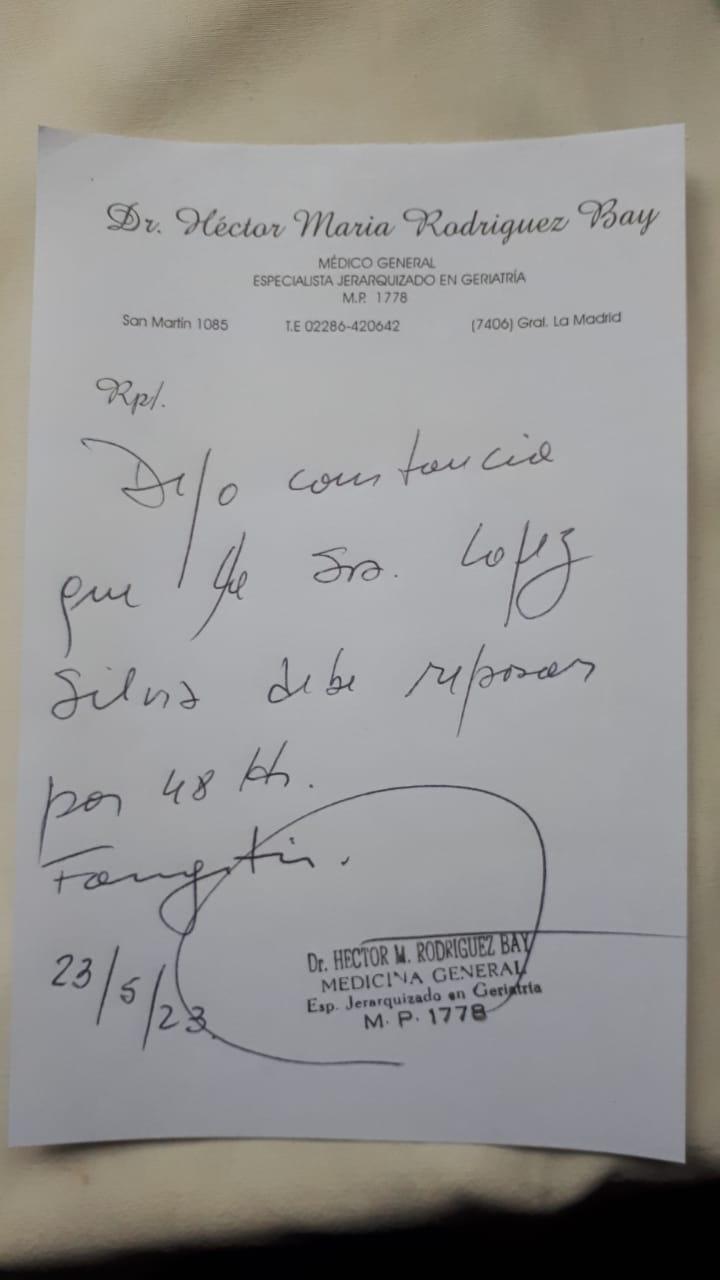 Dr. Héctor Maria Rodriguez Bay
MÉDICO GENERAL
ESPECIALISTA JERARQUIZADO EN GERIATRÍA
M.P. 1778
San Martín 1085 T.E 02286-420642 (7406) Gral. La Madrid
Rp/.
Dejo constancia
que la Sra. Lopez
Silvia debe reposar
por 48 Hs.
23/5/23
Dr. HECTOR M. RODRIGUEZ BAY
MEDICINA GENERAL
Esp. Jerarquizado en Geriatría
M. P. 1778